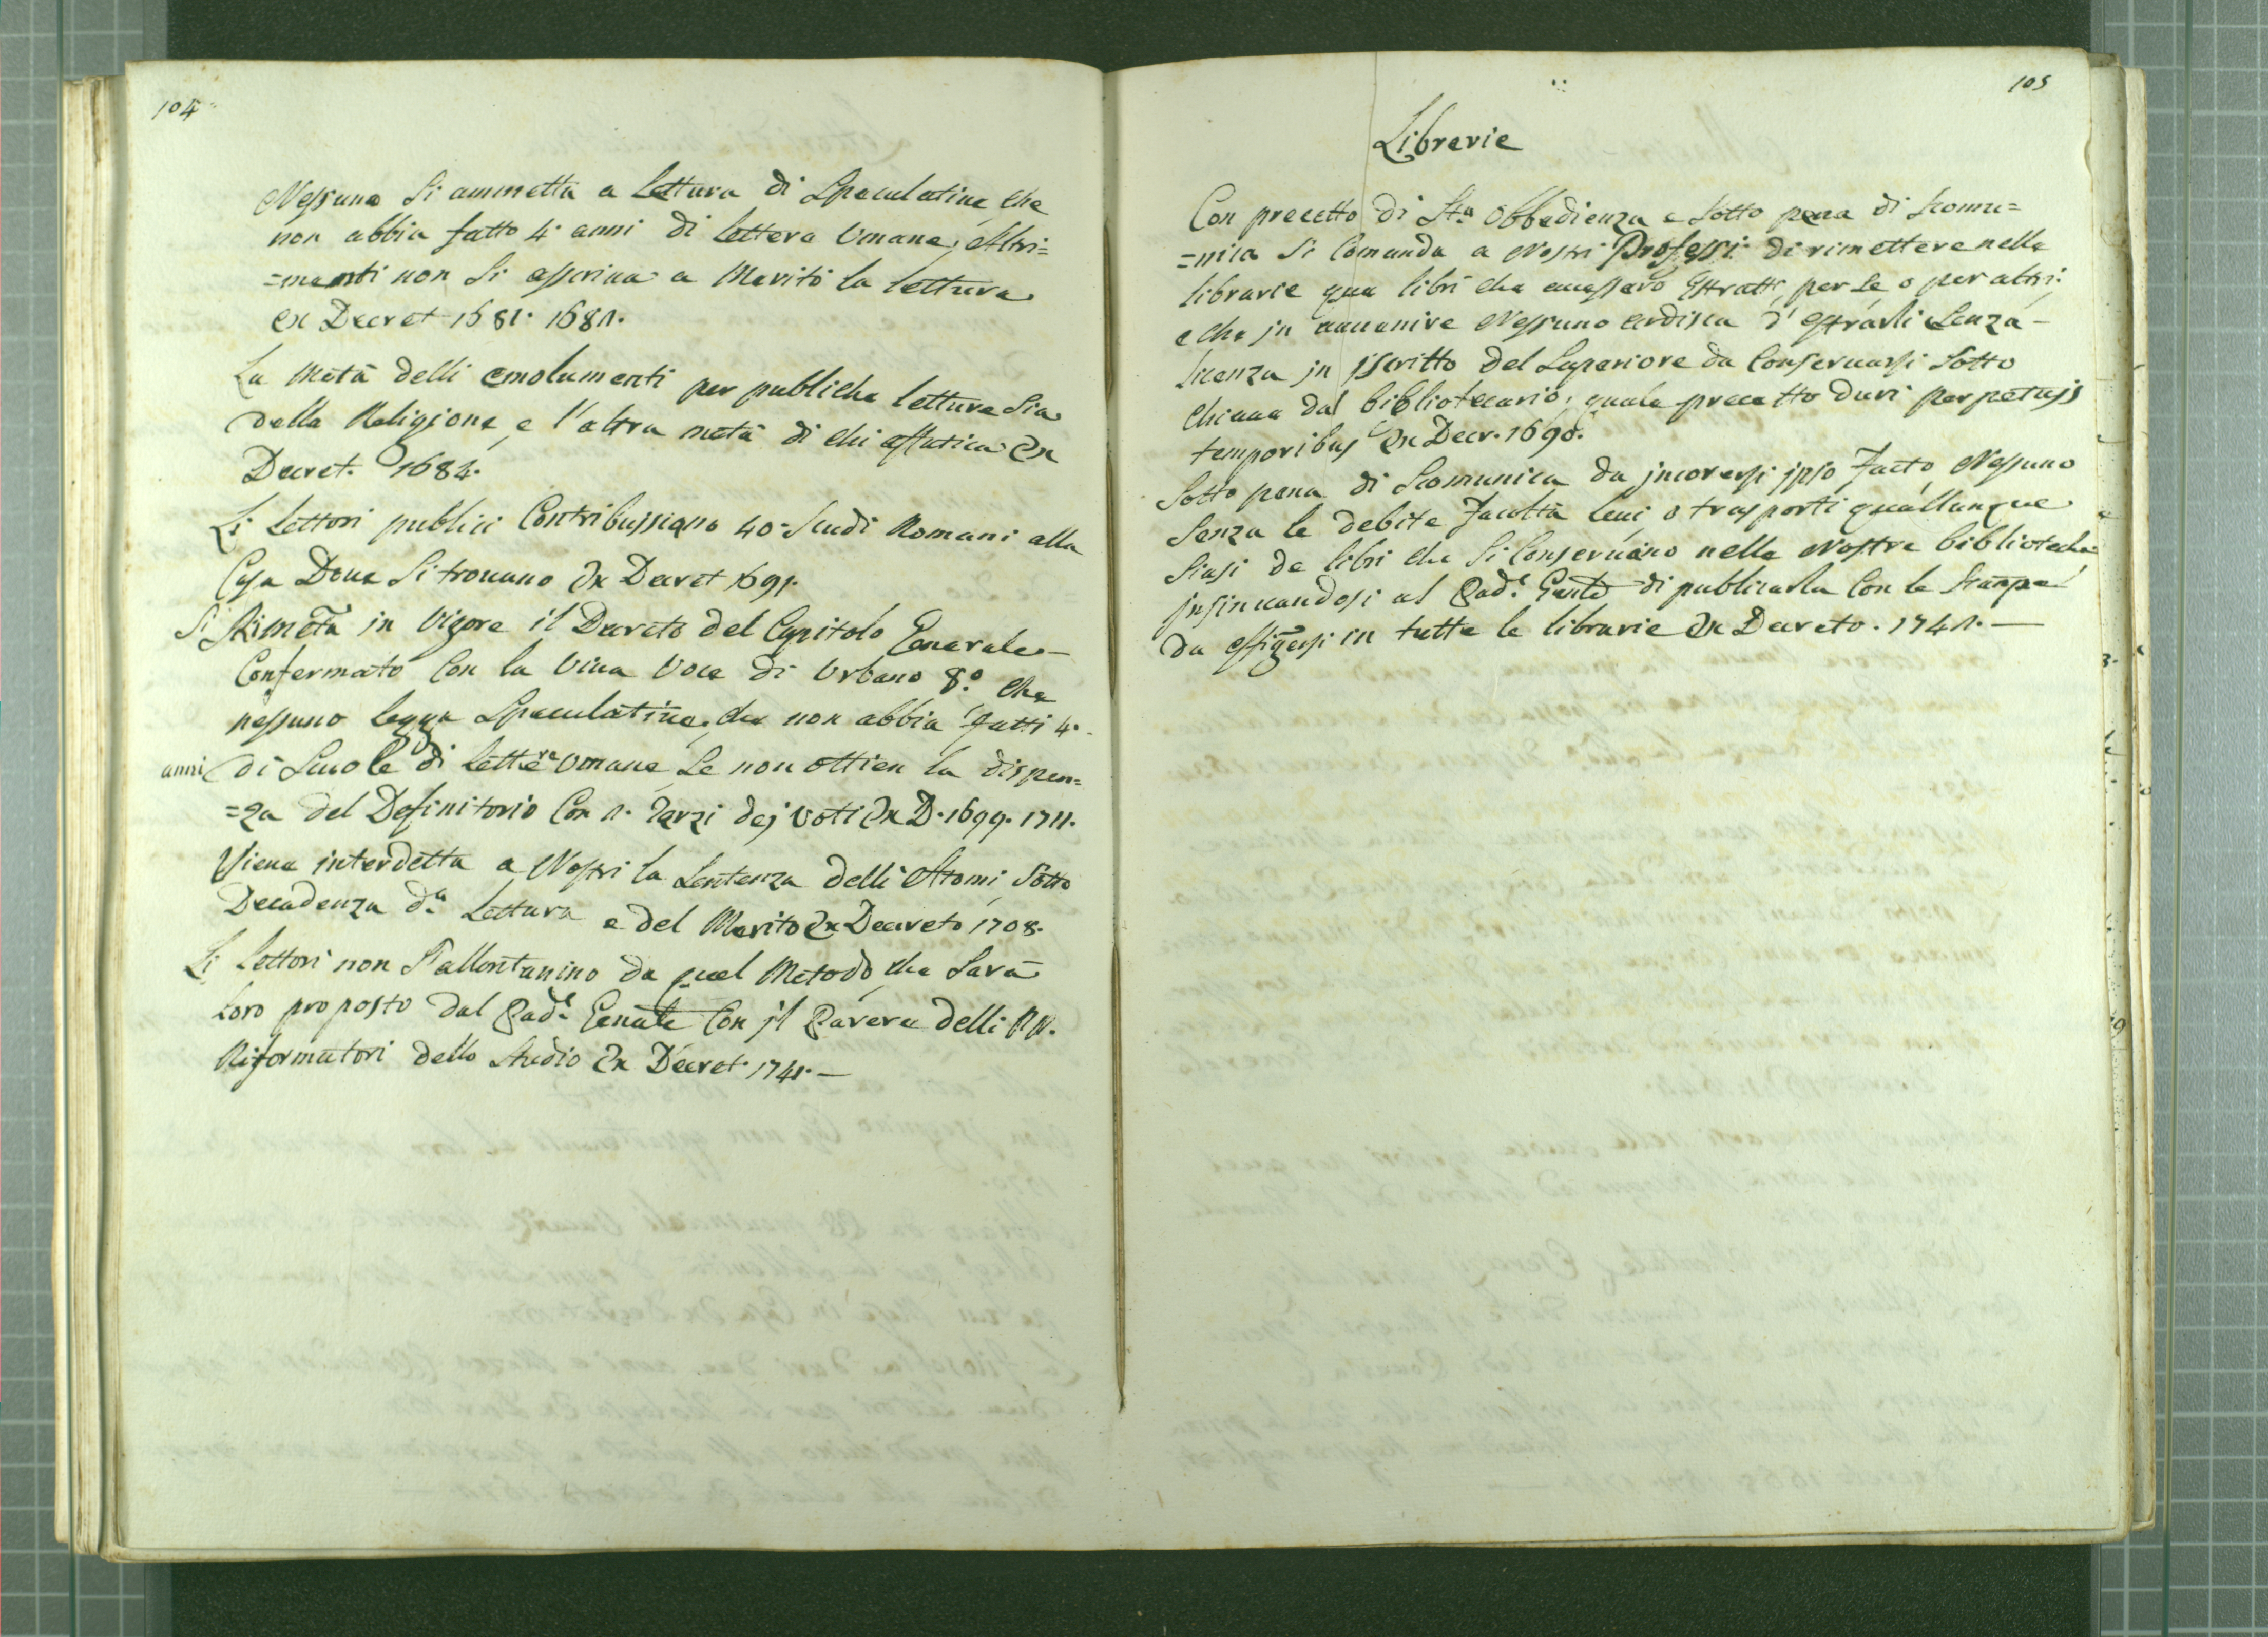 104
Nessuno Si ammetta a Lettura di Speculatiua che
non abbia fatto 4 anni di Lettere Vmane, Altri=
=menti non Si asscriua a Merito la lettura
ex Decret 1681. 1682.
La Metà delli emolumenti per publiche letture Sia
della Religione, e l'altra metà di chi affatica Ex
Decret. 1684.
Li Lettori publici Contribuiscano 40 Scudi Romani alla
Casa Doue Si trouano Ex Decret 1691.
Si Rimetta in Vigore il Decreto del Capitolo Generale
Confermato Con la Viua Voce di Vrbano 8.º che
nessuno legga Speculatiua, che non abbia fatti 4.
anni di Scuole di Lettere Vmane Se non ottien la dispen=
=za del Definitorio Con 2. Terzi dej Voti Ex D. 1699. 1711.
Viene interdetta a Nostri la Sentenza delli Atomi Sotto
Decadenza d.ª Lettura e del Merito Ex Decreto 1708.
Li Lettori non S'allontanino da quel Metodo, che Sarà
Loro proposto dal Pad.e Genale Con jl Parere delli RR.
Riformatori dello Studio Ex Decret. 1741.—
105
Librerie
Con precetto di Sta Obbedienza e Sotto pena di Scomu=
=nica Si Comanda a Nostri Professi di rimettere nelle
librarie que libri che auessero Estratti per Se o per altri:
e che in auuenire Nessuno ardisca d'estrarli Senza—
licenza in jscritto del Superiore da Conseruarsi Sotto
Chiaue dal bibliotecario, quale precetto duri perpetujs
temporibus Ex Decr. 1690.
Sotto pena di Scomunica da jncorersi jpso facto, Nessuno
Senza le debite facoltà leui, o trasporti quallunque
Siasi de libri che Si Conseruano nelle Nostre biblioteche
jnsinuandosi al Pad.e Genle di publicarla Con le Stampe
da affigersi in tutte le librarie Ex Decreto. 1742.—